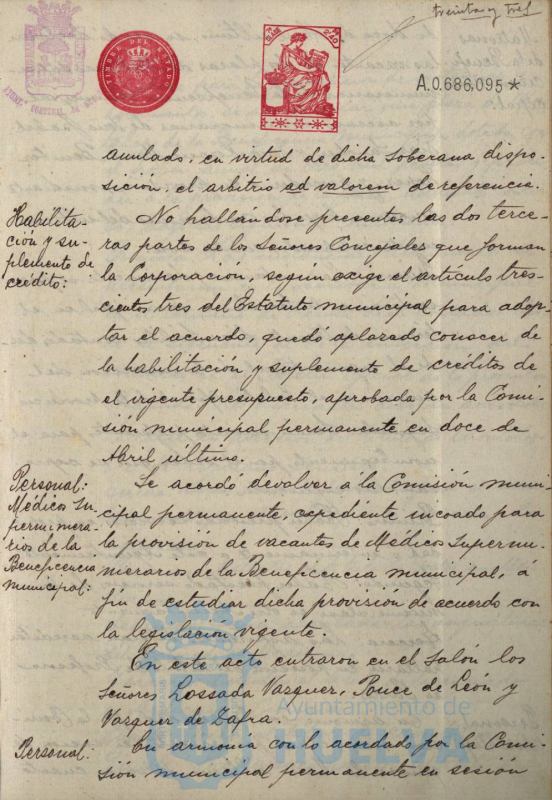 treinta y tres
TIMBRE DEL ESTADO
A.0.686,095*
anulado, en virtud de dicha Soberana dispo-
sición, el arbitrio ad valorem de referencia.
Habilita-
ción y su-
plemento de
crédito:
No hallándose presentes las dos terce-
ras partes de los Señores Concejales que forman
la Corporación, según exige el artículo tres-
cientos tres del Estatuto municipal para adop-
tar el acuerdo, quedó aplazado conocer de
la habilitación y suplemento de créditos de
el urgente presupuesto, aprobada por la Comi-
sión municipal permanente en doce de
Abril último.
Personal:
Médicos Su
pernumera-
rios de la
Beneficencia
municipal:
Se acordó devolver á la Comisión muni-
cipal permanente, expediente incoado para
la provisión de vacantes de Médicos Supernu-
merarios de la Beneficencia municipal, á
fin de estudiar dicha provisión de acuerdo con
la legislación vigente.
En este acto entraron en el Salón los
Señores Lossada Vazquez, Ponce de León y
Vazquez de Zafra.
Personal:
En armonia con lo acordado por la Comi-
sión municipal permanente en sesión
Ayuntamiento de
HUELVA